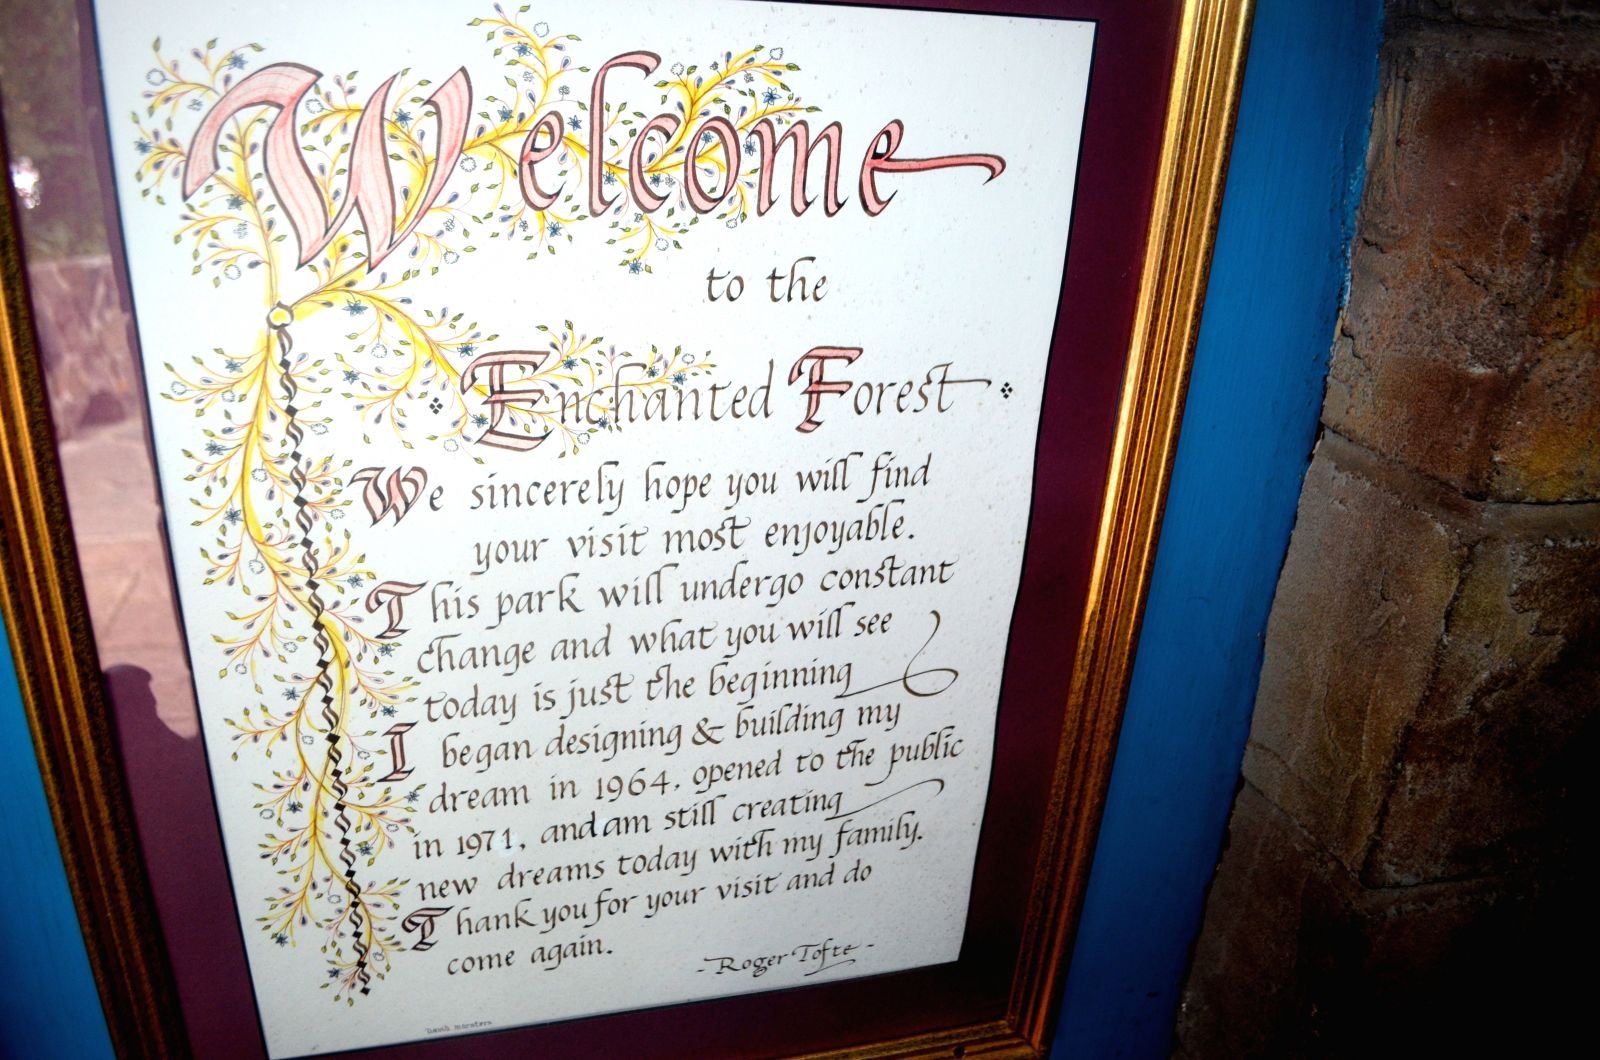 Welcome
to the
Enchanted Forest
We sincerely hope you will find
your visit most enjoyable.
This park will undergo constant
change and what you will see
today is just the beginning
I began designing & building my
dream in 1964, opened to the public
in 1971, and am still creating
new dreams today with my family.
Thank you for your visit and do
come again.
-Roger Tofte-